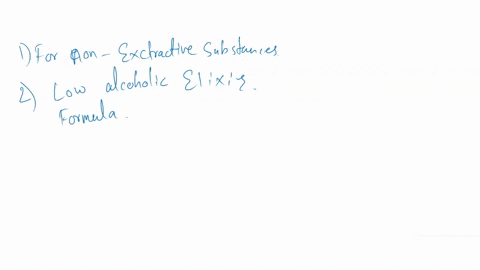 1) For Non - Exctractive Substances
2) Low alcoholic Elixir.
Formula.